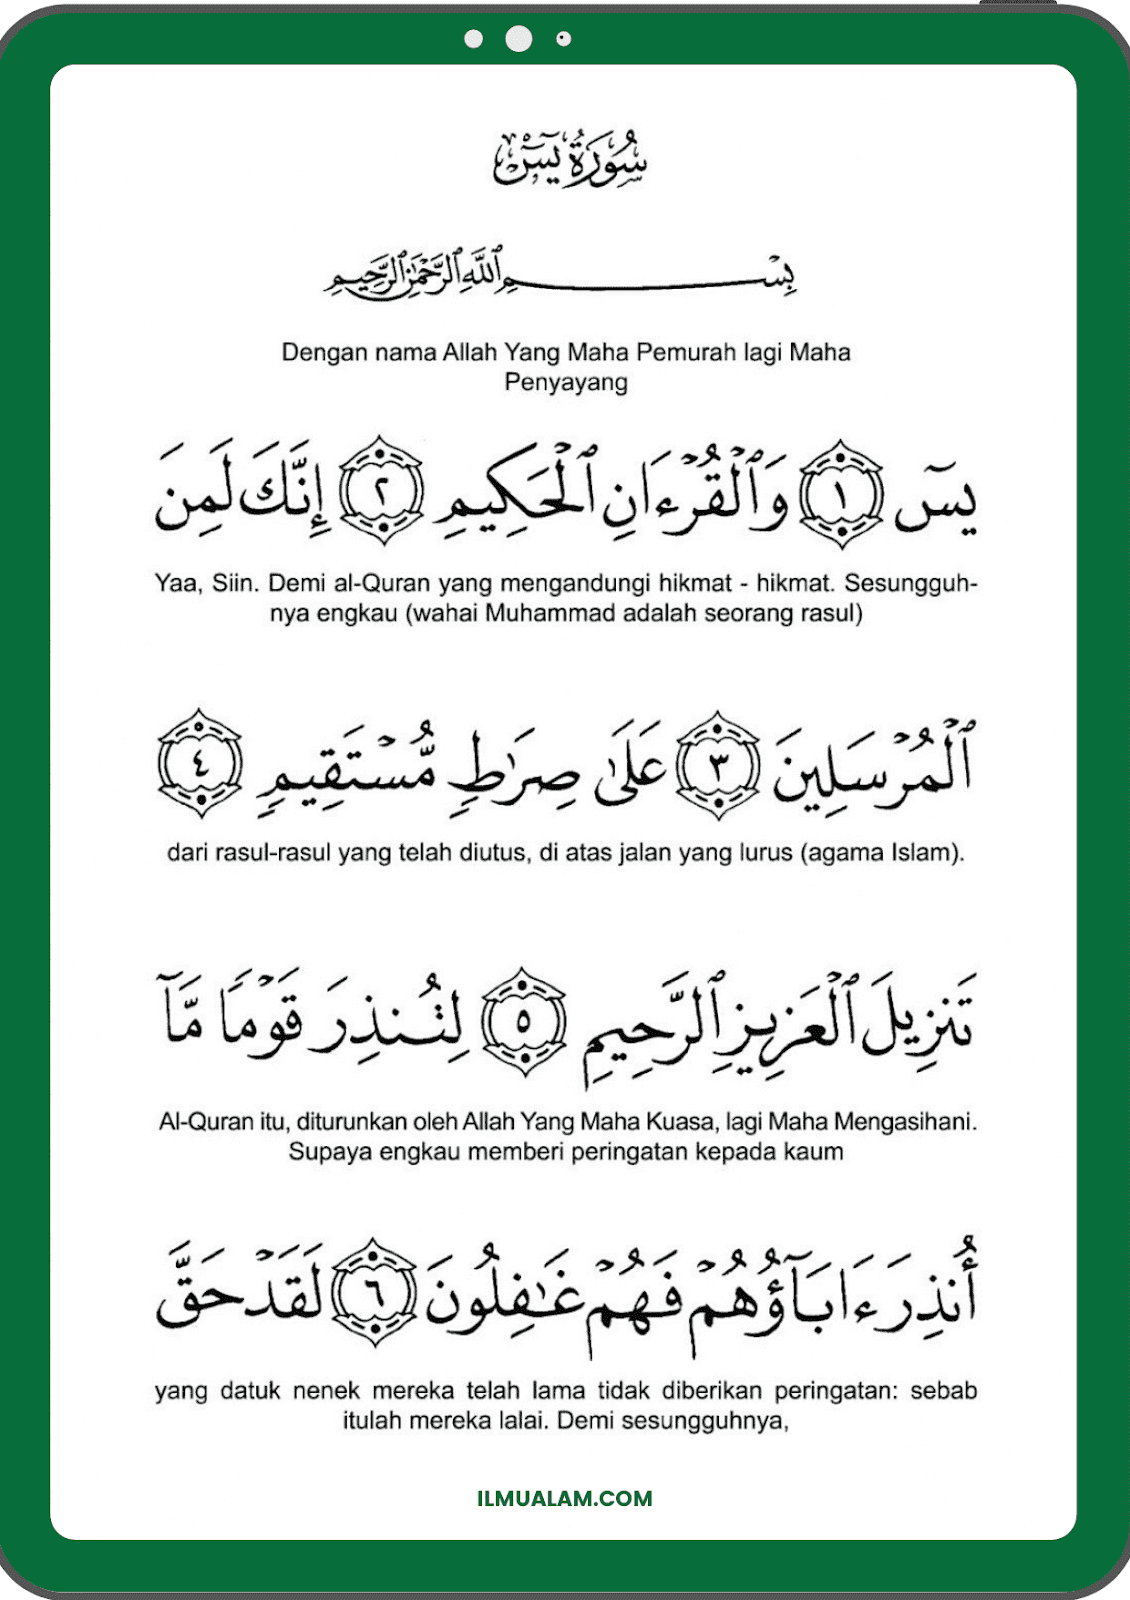 سُورَةُ يسٓ
بِسْمِ ٱللَّهِ ٱلرَّحْمَٰنِ ٱلرَّحِيمِ
Dengan nama Allah Yang Maha Pemurah lagi Maha
Penyayang
يسٓ ١ وَٱلْقُرْءَانِ ٱلْحَكِيمِ ٢ إِنَّكَ لَمِنَ
Yaa, Siin. Demi al-Quran yang mengandungi hikmat - hikmat. Sesungguh-
nya engkau (wahai Muhammad adalah seorang rasul)
ٱلْمُرْسَلِينَ ٣ عَلَىٰ صِرَٰطٍ مُّسْتَقِيمٍ ٤
dari rasul-rasul yang telah diutus, di atas jalan yang lurus (agama Islam).
تَنزِيلَ ٱلْعَزِيزِ ٱلرَّحِيمِ ٥ لِتُنذِرَ قَوْمًا مَّآ
Al-Quran itu, diturunkan oleh Allah Yang Maha Kuasa, lagi Maha Mengasihani.
Supaya engkau memberi peringatan kepada kaum
أُنذِرَ ءَابَآؤُهُمْ فَهُمْ غَٰفِلُونَ ٦ لَقَدْ حَقَّ
yang datuk nenek mereka telah lama tidak diberikan peringatan: sebab
itulah mereka lalai. Demi sesungguhnya,
ILMUALAM.COM